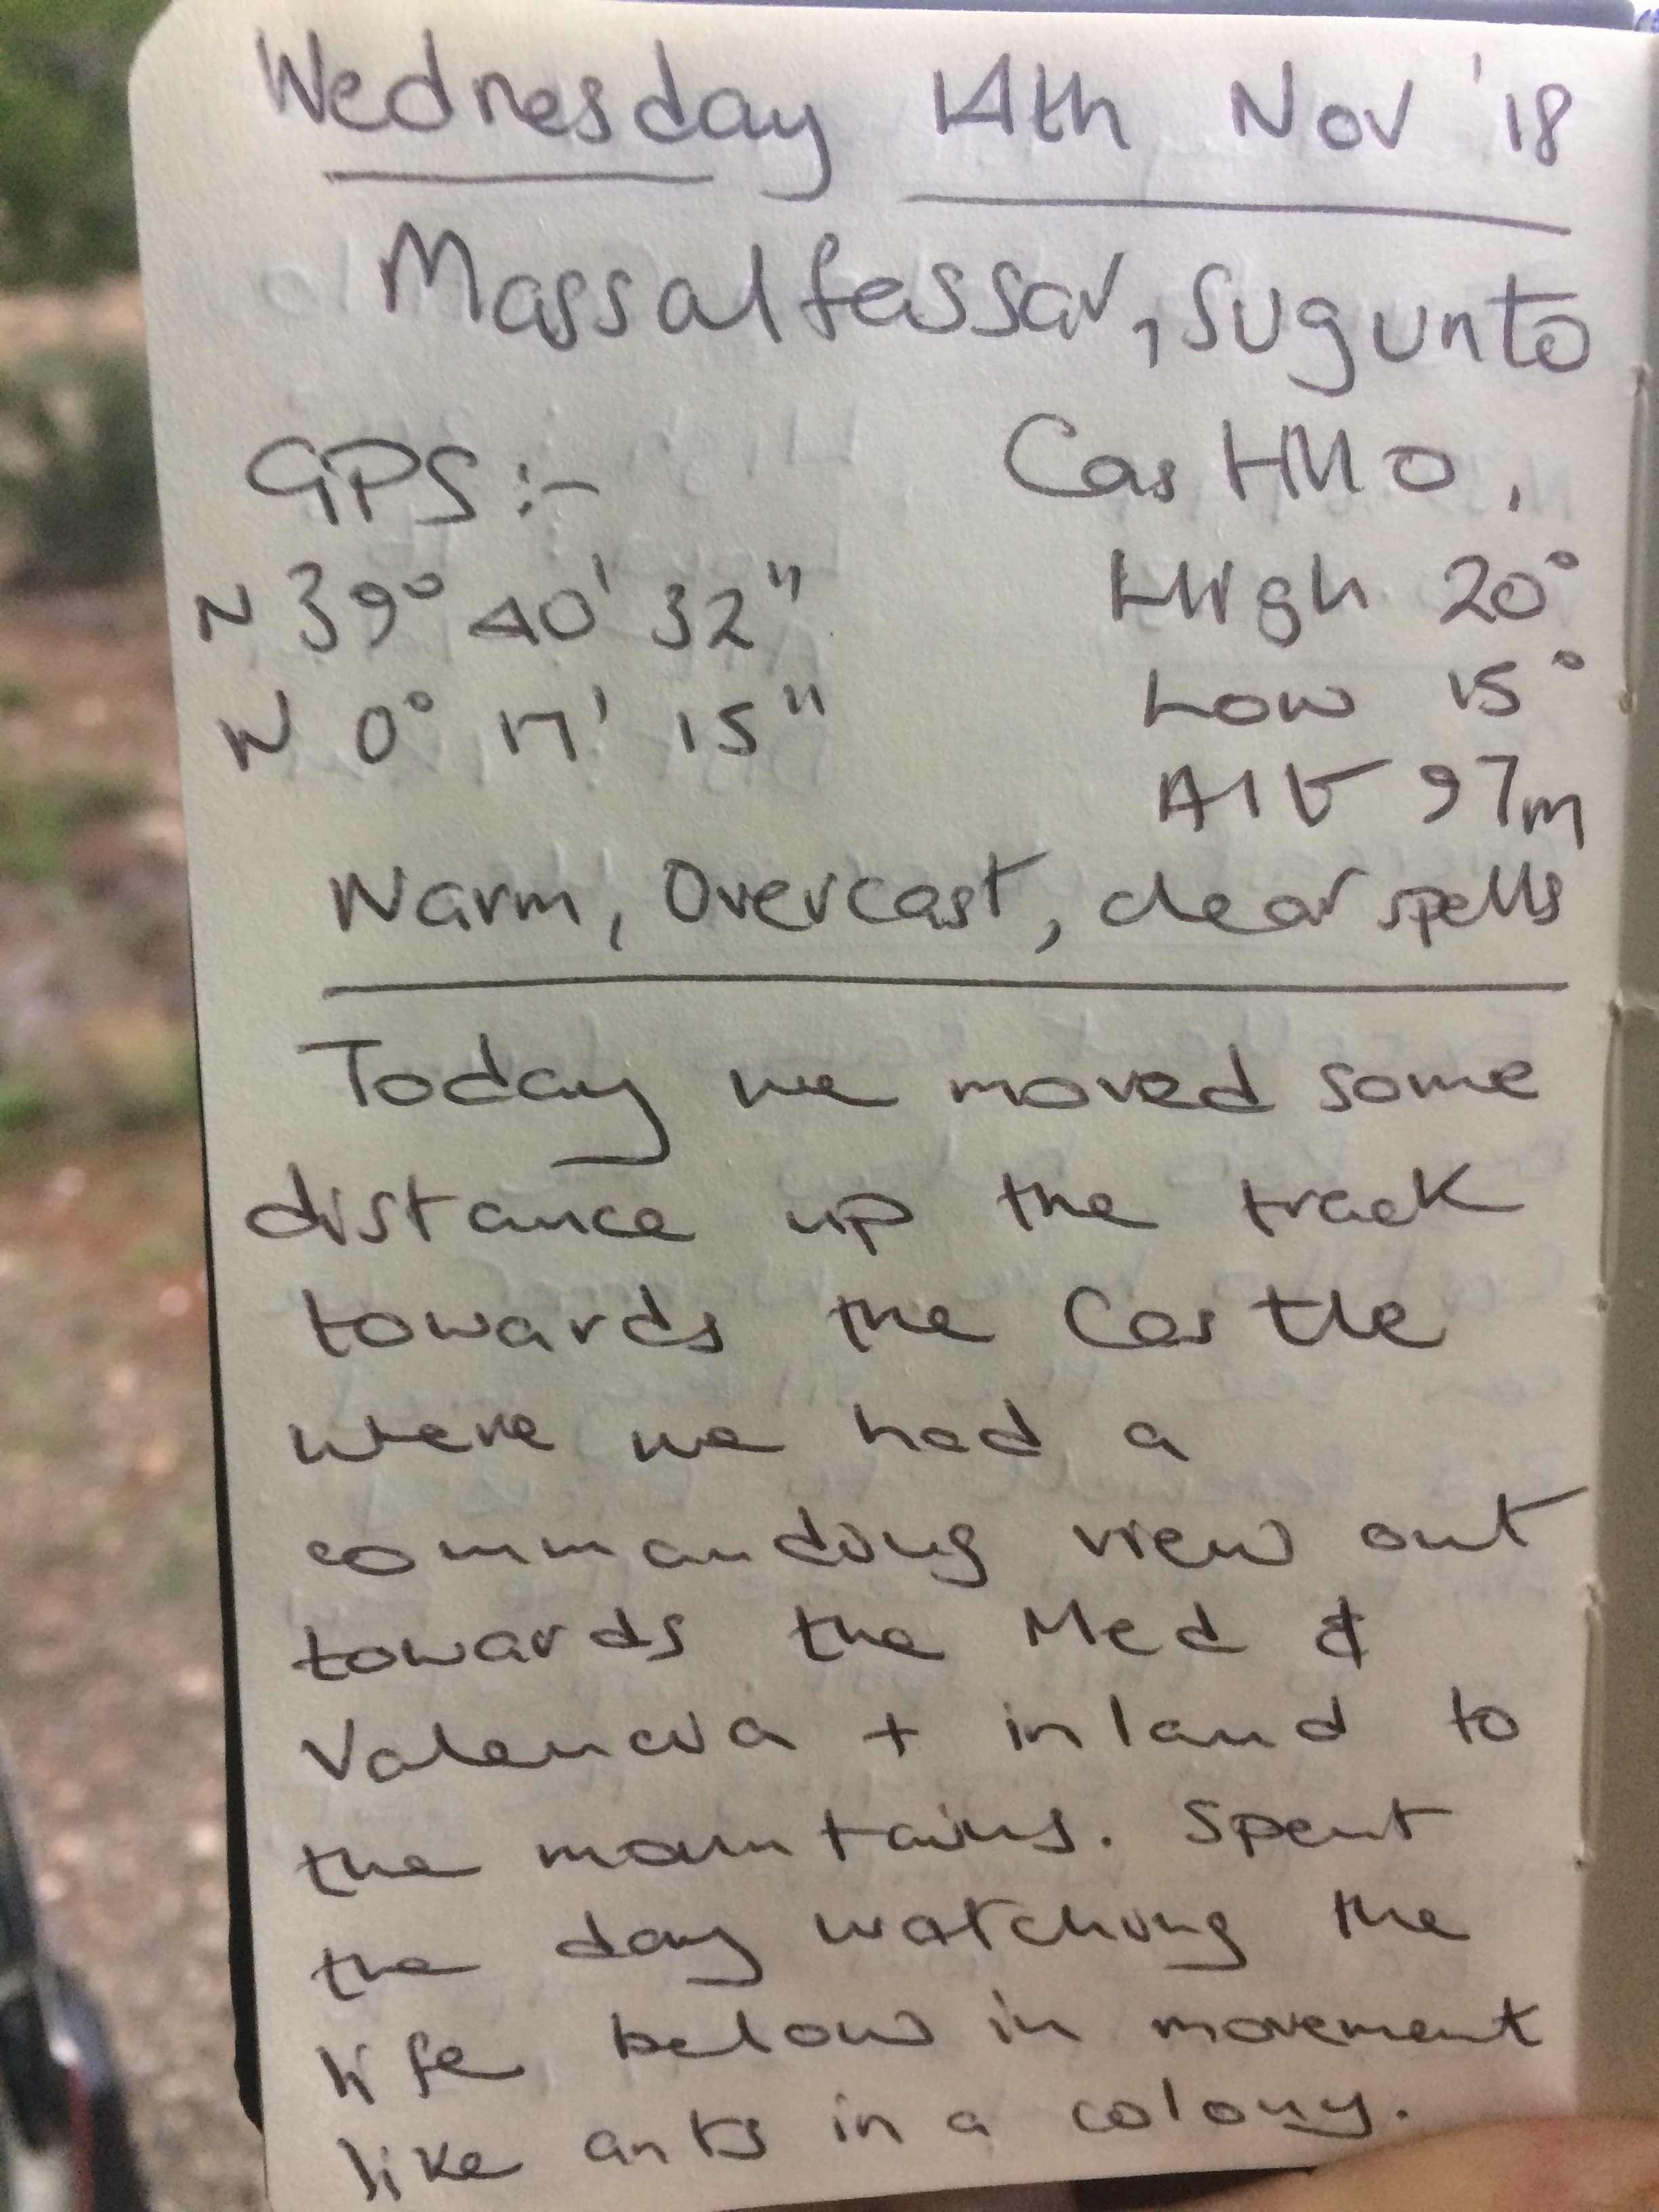 Wednesday 14th Nov '18
Massalfassar, Sugunto
GPS:- Castillo,
N 39° 40' 32" High 20°
W 0° 17' 15" Low 15°
Alt 97m
Warm, Overcast, clear spells
Today we moved some
distance up the track
towards the Castle
where we had a
commanding view out
towards the Med &
Valencia + inland to
the mountains. Spent
the day watching the
life below in movement
like ants in a colony.